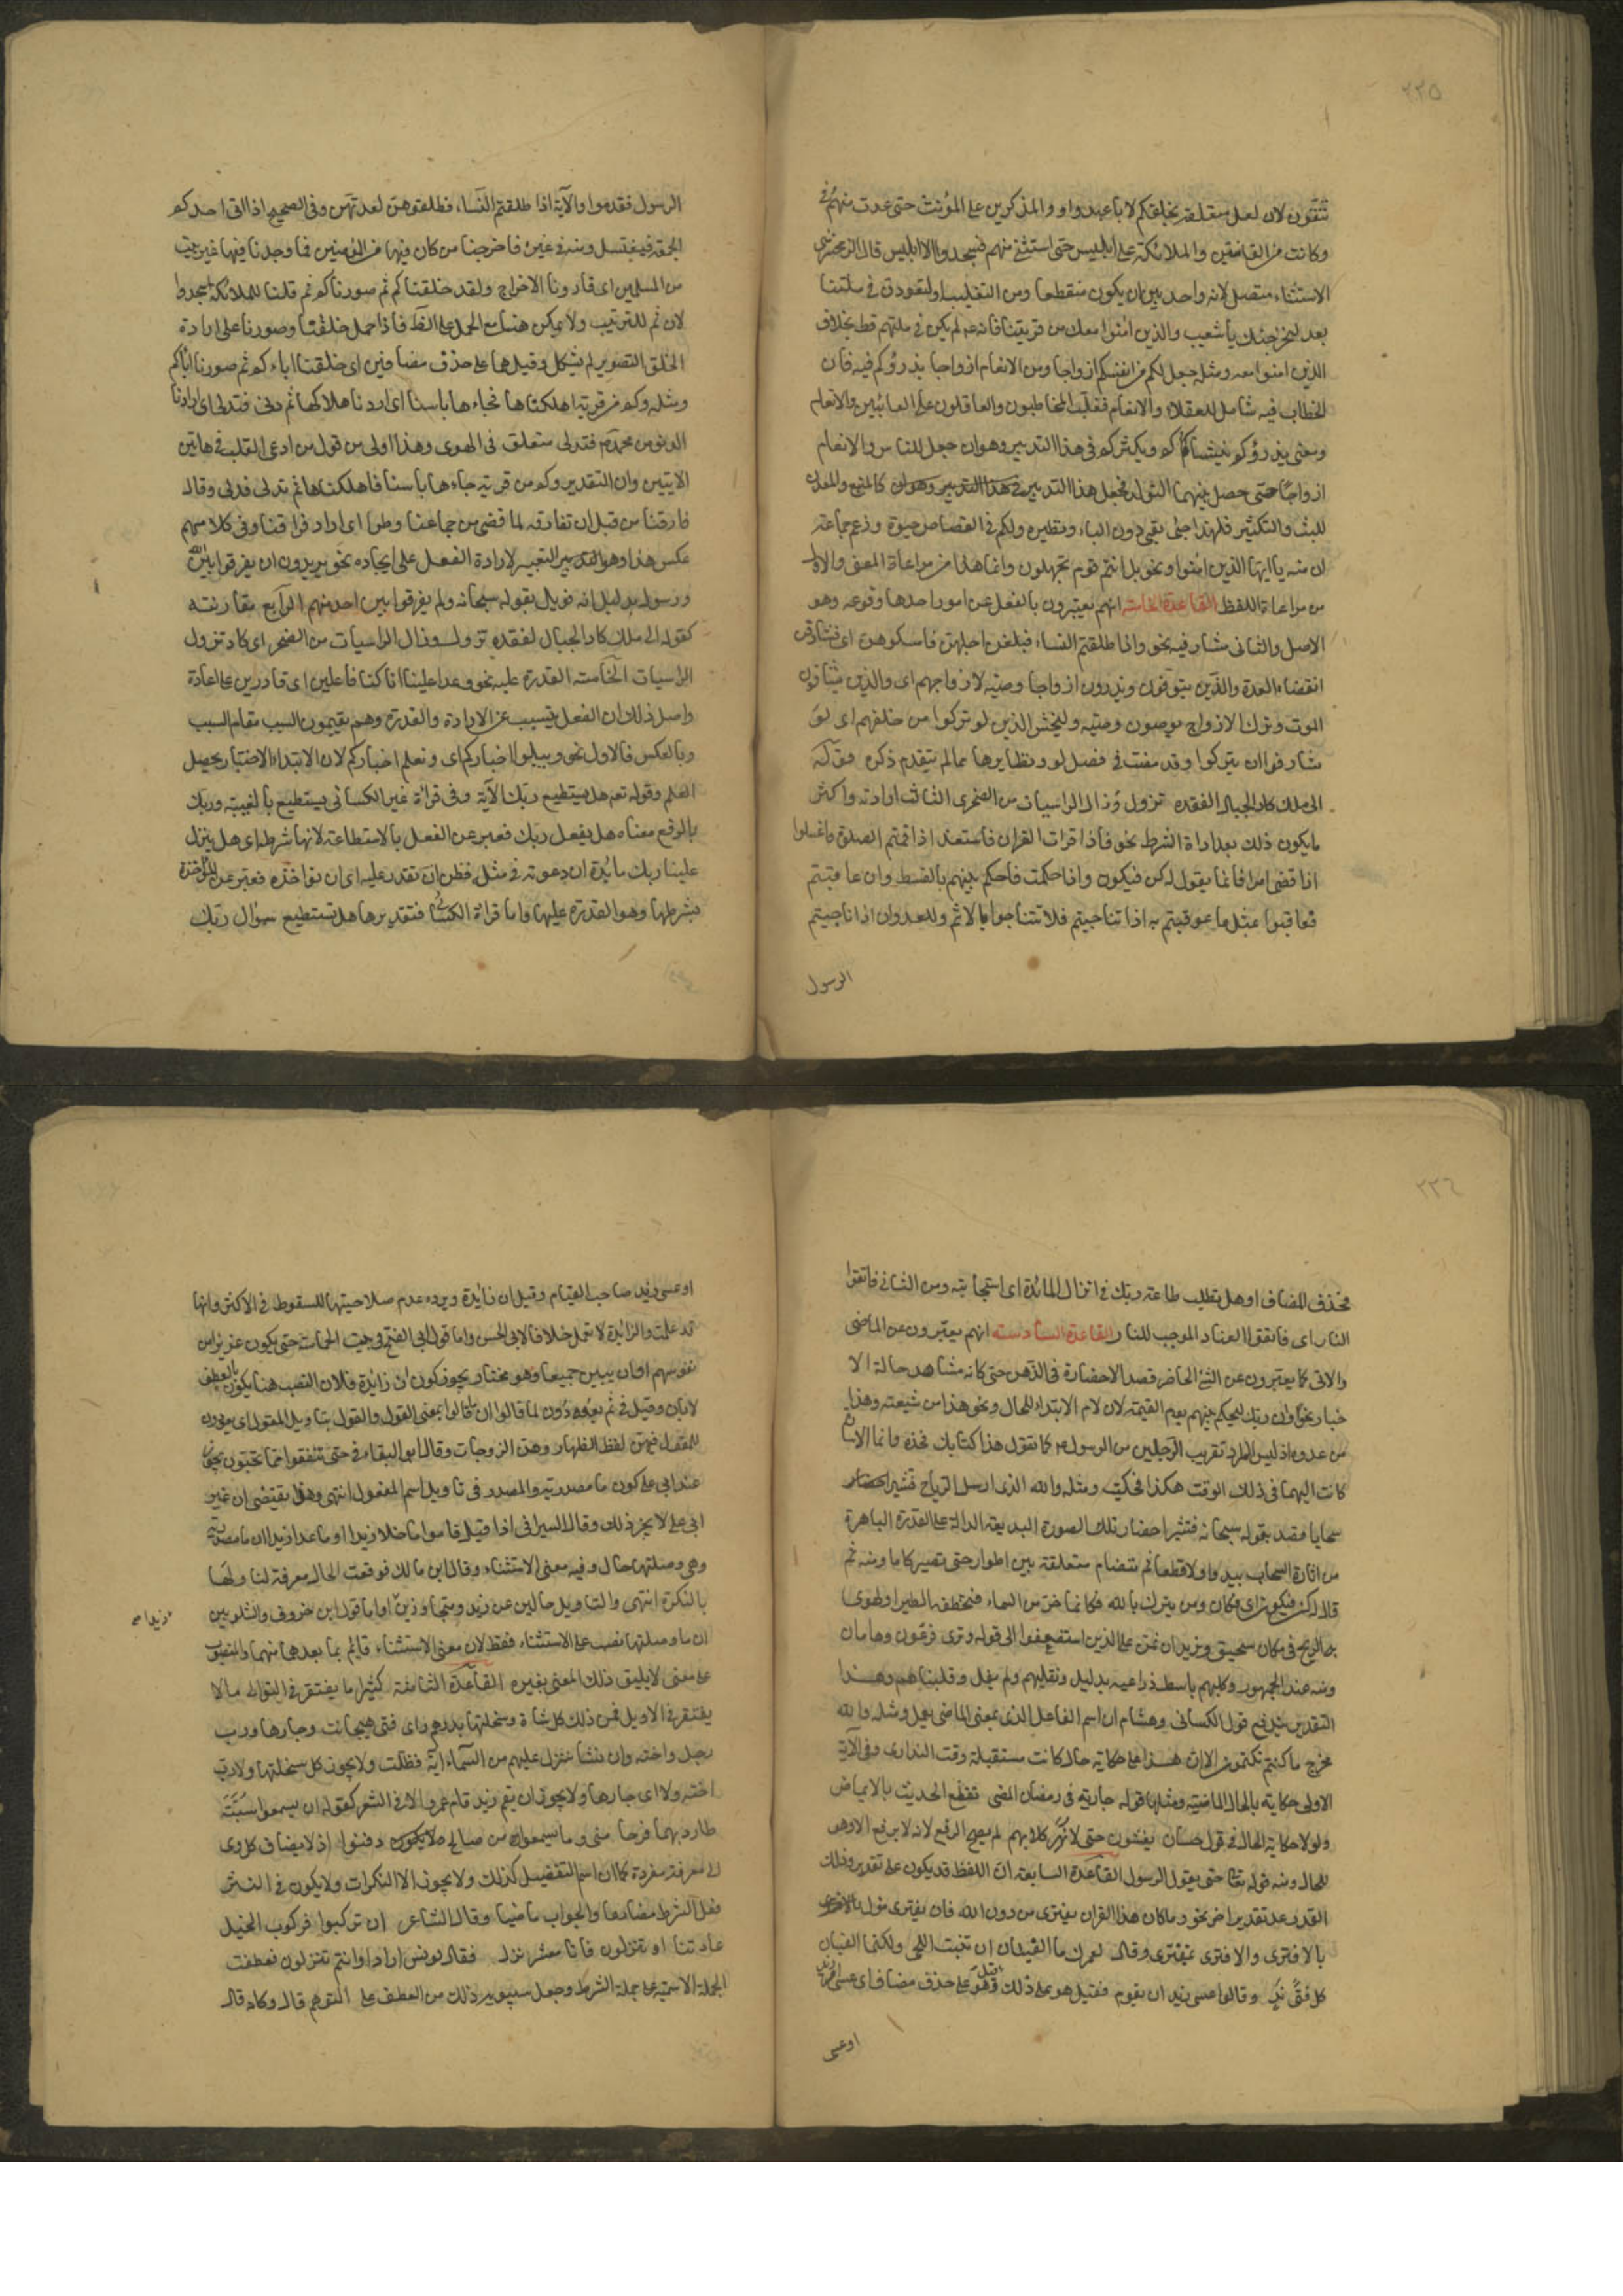 ٢٢٥
تتقون لان لعل متعلقة بخلقكم لا باعبدوا والمذكرين على المؤنث حتى عدت منهم في
وكانت من القانتين والملائكة على ابليس حتى استثنى منهم فسجدوا الا ابليس قال الزمخشري
الاستثناء متصل لانه واحد بين ان يكون منقطعا ومن التغليب او لتعودن في ملتنا
بعد لنخرجنك يا شعيب والذين امنوا معك من قريتنا فانه عم لم يكن في ملتهم قط بخلاف
الذين امنوا معه ومثله جعل لكم من انفسكم ازواجا ومن الانعام ازواجا يذرؤكم فيه فان
الخطاب فيه شامل للعقلاء والانعام فغلب المخاطبون والعاقلون على الغائبين والانعام
ومعنى يذرؤكم فيه يبثكم ويكثركم في هذا التدبير وهو ان جعل للناس والانعام
ازواجا حتى حصل بينهما التوالد فجعل هذا التدبير في هذا التدبير وهو ان كالمنبع والمعدن
للبث والتكثير فلهذا جئ بفي دون الباء ونظيره ولكم في القصاص حيوة وزعم جماعة
ان منه يا ايها الذين امنوا ونحو بل انتم قوم تجهلون وانما هذا من مراعاة المعنى والاول
من مراعاة اللفظ القاعدة الخامسة انهم يعبرون بالفعل عن امور احدها وقوعه وهو
الاصل والثاني مشارفته نحو واذا طلقتم النساء فبلغن اجلهن فامسكوهن اى فشارفن
انقضاء العدة والذين يتوفون ويذرون ازواجا وصية لازواجهم اى والذين يشارفون
الموت وترك الازواج يوصون وصية وليخش الذين لو تركوا من خلفهم اى لو
شارفوا ان يتركوا وقد مضت في فصل لو ونظايرها مما لم يتقدم ذكره قوله
الى ملك كاد الجبال لفقده تزول وزال الراسيات من الصخر الثالث ارادته واكثر
ما يكون ذلك بعد اداة الشرط نحو فاذا قرات القران فاستعذ اذا قمتم الى الصلوة فاغسلوا
اذا قضى امرا فانما يقول له كن فيكون وان حكمت فاحكم بينهم بالقسط وان عاقبتم
فعاقبوا بمثل ما عوقبتم به اذا تناجيتم فلا تتناجوا بالاثم والعدوان اذا ناجيتم
الرسول
الرسول فقدموا والاية اذا طلقتم النساء فطلقوهن لعدتهن وفى الصحيح اذا اتى احدكم
الجمعة فليغتسل ومنه في غيره فاخرجنا من كان فيها من المؤمنين فما وجدنا فيها غير بيت
من المسلمين اى فاردنا الاخراج ولقد خلقناكم ثم صورناكم ثم قلنا للملائكة اسجدوا
لان ثم للترتيب ولا يمكن هنا مع الحمل على الظ فاذا حمل خلقنا وصورنا على ارادة
الخلق التصوير لم يشكل وقيل هما على حذف مضافين اى خلقنا اباءكم ثم صورنا اباكم
ومثله وكم من قرية اهلكناها فجاءها باسنا اى اردنا هلاكها ثم دنى فتدلى اى اراد
الدنو من محمد ص فتدلى متعلق فى الهوى وهذا اولى من قول من ادعى القلب في هاتين
الايتين وان التقدير وكم من قرية جاءها باسنا فاهلكناها ثم تدلى فدنى وقال
فارقنا من قبل ان نفارقه لما قضى من جماعنا وطرا اى اراد فراقنا وفى كلامهم
عكس هذا وهو التعبير لارادة الفعل على ايجاده نحو يريدون ان يفرقوا بين الله
ورسوله بدليل انه قوبل بقوله سبحانه ولم يفرقوا بين احد منهم الرابع مقاربته
كقوله الى ملك كاد الجبال لفقده تزول وزال الراسيات من الصخر اى كاد تزول
الراسيات الخامسة القدرة عليه نحو وعدا علينا انا كنا فاعلين اى قادرين على الاعادة
واصل ذلك ان الفعل يتسبب عن الارادة والقدرة وهم يقيمون السبب مقام المسبب
وبالعكس فالاول نحو ويبلوا اخباركم اى ونعلم اخباركم لان الابتلاء الاختبار يحصل
العلم وقوله تعه هل يستطيع ربك الاية وفى قراءة غير الكسائى يستطيع بالغيبة وربك
بالرفع معناه هل يفعل ربك فعبر عن الفعل بالاستطاعة لانها شرطه اى هل ينزل
علينا ربك مائدة ان دعوته في مثله فظن ان لن نقدر عليه اى ان لن نؤاخذه فعبر عن المؤاخذة
بشرطها وهو القدرة عليها واما قراءة الكسائى فتقديرها هل تستطيع سؤال ربك
٢٢٦
فحذف المضاف او هل تطلب طاعة ربك في انزال المائدة اى استجابته ومن الثانى فاتقوا
النار اى فاتقوا العناد الموجب للنار القاعدة السادسة انهم يعبرون عن الماضى
والاتى كما يعبرون عن الشئ الحاضر قصد الاحضاره فى الذهن حتى كانه مشاهد حالة الا
خبار نحو وان ربك ليحكم بينهم يوم القيمة لان لام الابتداء للحال ونحو هذا من شيعته وهذا
من عدوه اذ ليس المراد تقريب الرجلين من الرسول ص كما تقول هذا كتابك فخذه وانما الاشارة
كانت اليهما فى ذلك الوقت هكذا فحكيت ومثله والله الذى ارسل الرياح فتثير
سحابا قصد بقوله سبحانه فتثير احضار تلك الصورة البديعة الدالة على القدرة الباهرة
من اثارة السحاب يبدو اولا قطعا ثم تتضام متعلقة بين اطوار حتى تصير ركاما ومنه ثم
قال له كن فيكون اى فكان ومن يشرك بالله فكانما خر من السماء فتخطفه الطير او تهوى
به الريح فى مكان سحيق ونريد ان نمن على الذين استضعفوا الى قوله ونرى فرعون وهامان
ومنه عند الجمهور وكلبهم باسط ذراعيه بدليل ونقلبهم ولم يقل وقلبناهم وهذا
التقدير يندفع قول الكسائى وهشام ان اسم الفاعل الذى بمعنى الماضى يعمل ومثله والله
مخرج ما كنتم تكتمون الا ان هذا على حكاية حال كانت مستقبلة وقت التدارى وفى الاية
الاولى حكاية بالحال الماضية ومثلها قوله جارية فى رمضان الماضى تقطع الحديث بالايماض
ولولا حكاية الحال فى قول حسان يغشون حتى لا تهر كلابهم لم يصح الرفع لانه لا يرفع الا وهو
للحال ومنه قوله تعا حتى يقول الرسول القاعدة السابعة ان اللفظ قد يكون على تقدير وذلك
القدر على تقدير اخر نحو وما كان هذا القران يفترى من دون الله فان يفترى مؤل
بالافترى والافترى بمفترى وقال لعمرك ما الفتيان ان تنبت اللحى ولكنما الفتيان
كل فتى ند وقالوا عسى زيد ان يقوم فقيل هو على ذلك وقيل على حذف مضاف اى عسى امر زيد
او عسى
او عسى زيد صاحب القيام وقيل ان زائدة ويرده عدم صلاحيتها للسقوط فى الاكثر وانها
قد عملت والزائدة لا تعمل خلافا لابى الحسن واما قول ابى الفتح في بيت الحماسة حتى يكون عزيزا من
نفوسهم او ان يبين جميعا وهو مختار يجوز كون ان زائدة فلان النصب هنا يكون بالعطف
لا بان وقيل في ثم يعودون لما قالوا ان ما قالوا بمعنى القول والقول بتاويل المقول اى يعودون
للمقول فيهن لفظ الظهار وهن الزوجات وقال ابو البقاء في حتى تنفقوا مما تحبون يجوز
عند ابى على كون ما مصدرية والمصدر فى تاويل اسم المفعول انتهى وهذا يقتضى ان غير
ابى على لا يجيز ذلك وقال السيرافى اذا قيل قاموا ما خلا زيدا او ما عدا زيدا ان ما مصدرية
وهى وصلتها حال وفيه معنى الاستثناء وقال ابن مالك فوقعت الحال معرفة لتاولها
بالنكرة انتهى والتاويل خالين عن زيد ومتجاوزين واما قول ابن خروف والشلوبين
زيدا صح
ان ما وصلتها نصب على الاستثناء فغلط لان معنى الاستثناء قائم بما بعدهما منهما والمنصوب
على معنى لا يليق ذلك المعنى بغيره القاعدة الثامنة كثيرا ما يغتفر فى الثوانى ما لا
يغتفر فى الاوايل فمن ذلك كل شاة وسخلتها بدرهم واى فتى هيجا انت وجارها ورب
رجل واخته وان نشا ننزل عليهم من السماء اية فظلت ولا يجوز كل سخلتها ولا رب
اخته ولا اى جارها ولا يجوز ان يقم زيد قام عمرو الا فى الشعر كقوله ان يسمعوا سبة
طاروا بها فرحا منى وما يسمعوا من صالح دفنوا اذ لا يضاف كل وى
الى معرفة مفردة كما ان اسم التفضيل كذلك ولا يجوز الا النكرات ولا يكون فى النثر
فعل الشرط مضارعا والجواب ماضيا وقال الشاعر ان تركبوا فركوب الخيل
عادتنا او تنزلون فانا معشر نزل فقال يونس اراد او انتم تنزلون فعطفت
الجملة الاسمية على جملة الشرط وجعل سيبويه ذلك من العطف على التوهم قال وكانه قال